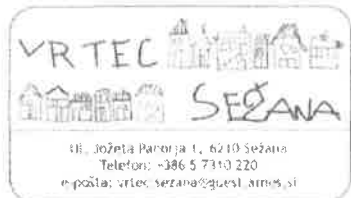 VRTEC
SEŽANA
Ul. Jožeta Pahorja 1, 6210 Sežana
Telefon: +386 5 7310 220
e-pošta: vrtec.sezana@guest.arnes.si